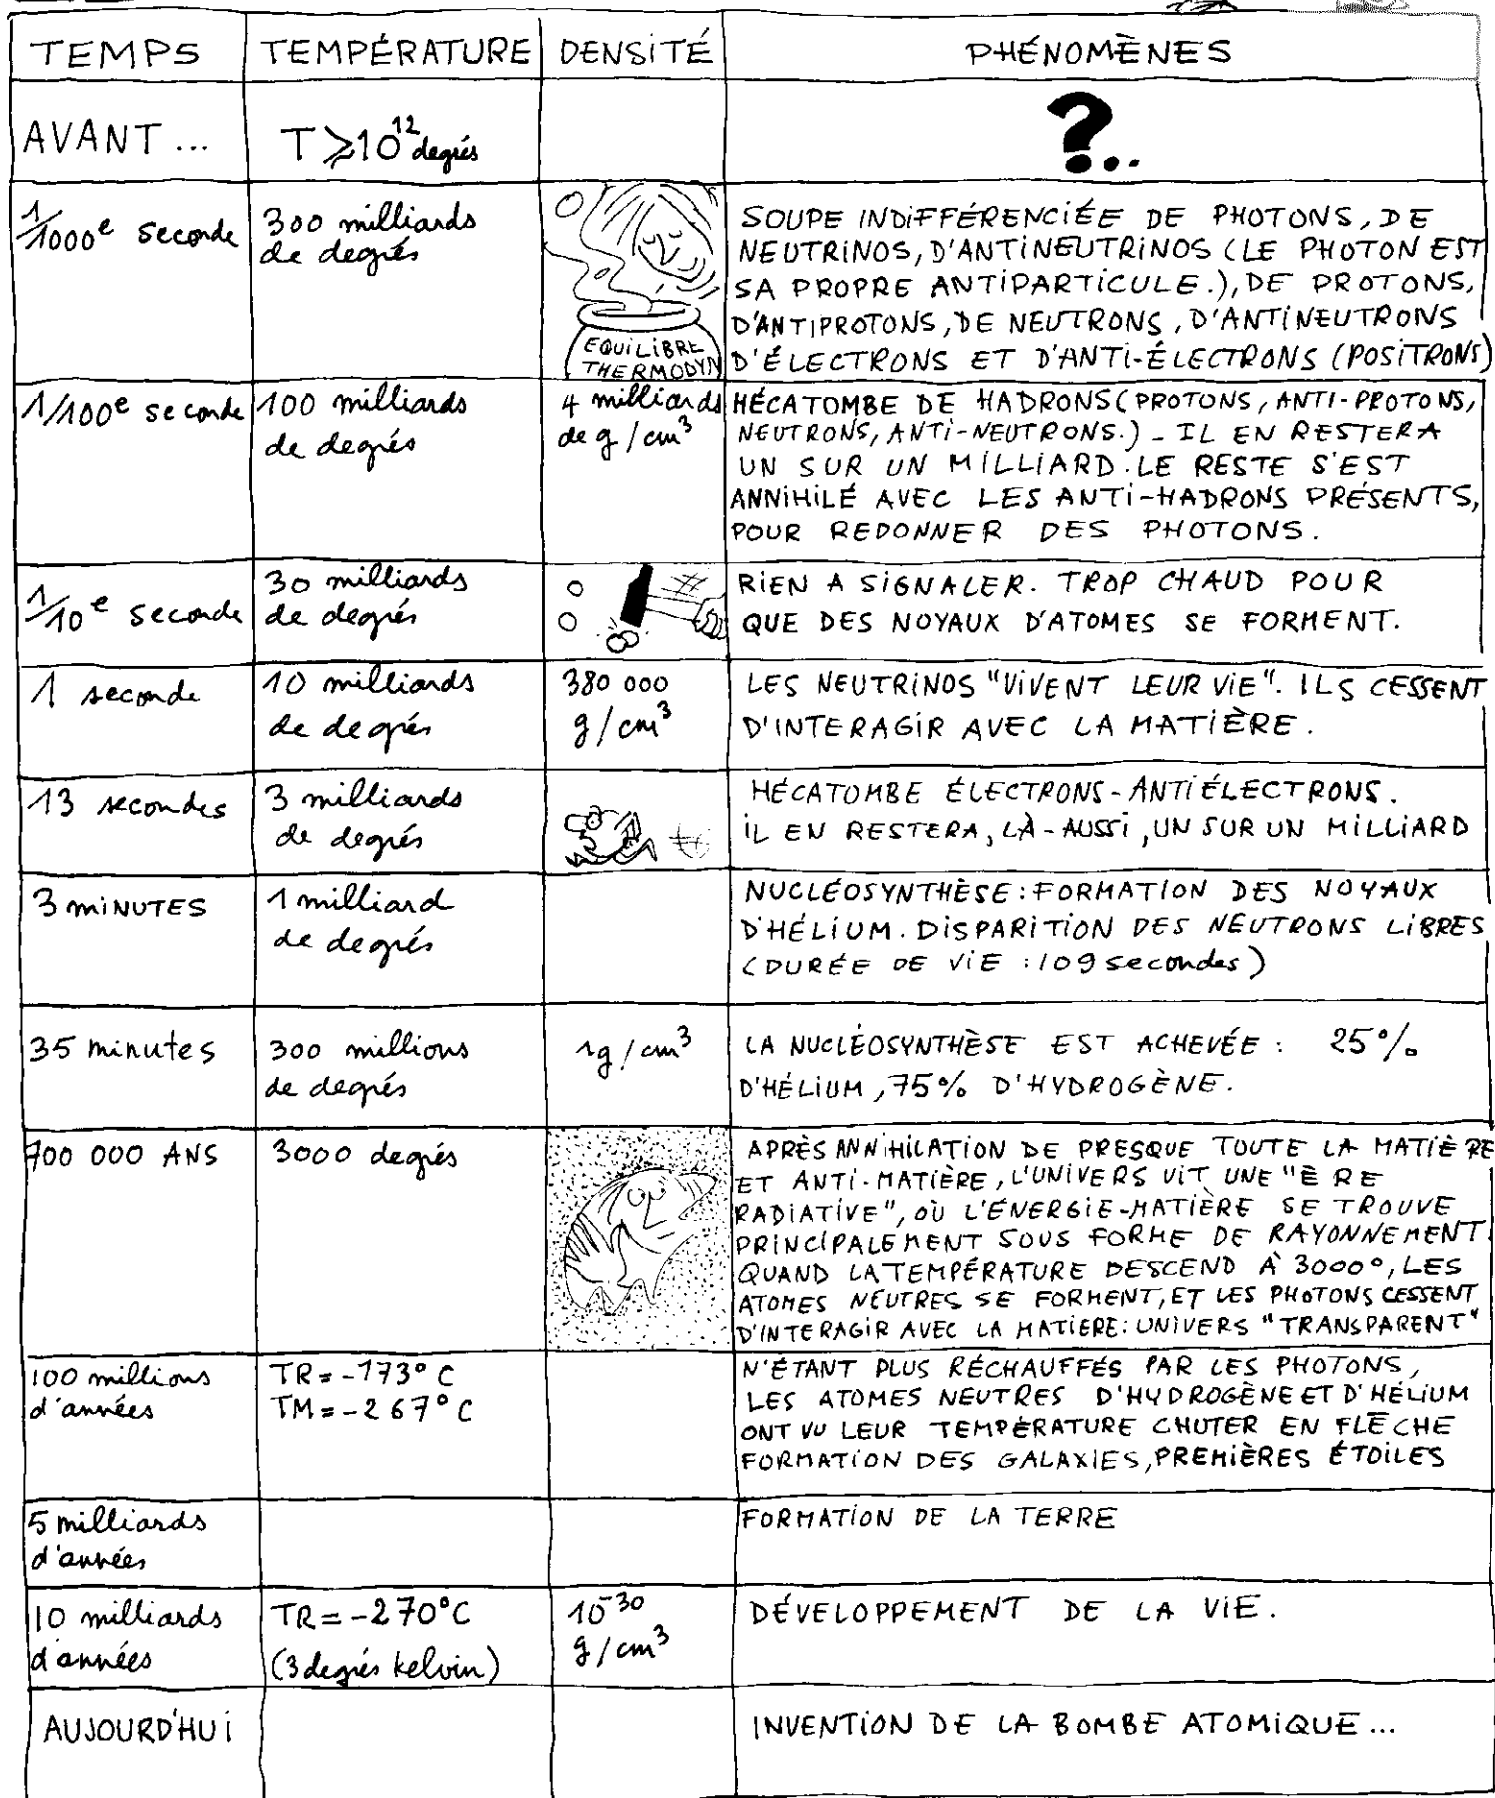 TEMPS TEMPÉRATURE DENSITÉ PHÉNOMÈNES
AVANT ... T ⩾ 10¹² degrés ?..
1/1000e seconde
300 milliards
de degrés
EQUILIBRE
THERMODYN
SOUPE INDIFFÉRENCIÉE DE PHOTONS, DE
NEUTRINOS, D'ANTINEUTRINOS (LE PHOTON EST
SA PROPRE ANTIPARTICULE.), DE PROTONS,
D'ANTIPROTONS, DE NEUTRONS, D'ANTINEUTRONS
D'ÉLECTRONS ET D'ANTI-ÉLECTRONS (POSITRONS)
1/100e seconde
100 milliards
de degrés
4 milliards
de g/cm³
HÉCATOMBE DE HADRONS (PROTONS, ANTI-PROTONS,
NEUTRONS, ANTI-NEUTRONS.) - IL EN RESTERA
UN SUR UN MILLIARD. LE RESTE S'EST
ANNIHILÉ AVEC LES ANTI-HADRONS PRÉSENTS,
POUR REDONNER DES PHOTONS.
1/10e seconde
30 milliards
de degrés
RIEN A SIGNALER. TROP CHAUD POUR
QUE DES NOYAUX D'ATOMES SE FORMENT.
1 seconde
10 milliards
de degrés
380 000
g/cm³
LES NEUTRINOS "VIVENT LEUR VIE". ILS CESSENT
D'INTERAGIR AVEC LA MATIÈRE.
13 secondes
3 milliards
de degrés
HÉCATOMBE ÉLECTRONS-ANTIÉLECTRONS.
IL EN RESTERA, LÀ-AUSSI, UN SUR UN MILLIARD
3 MINUTES
1 milliard
de degrés
NUCLÉOSYNTHÈSE: FORMATION DES NOYAUX
D'HÉLIUM. DISPARITION DES NEUTRONS LIBRES
(DURÉE DE VIE : 109 secondes)
35 minutes
300 millions
de degrés
1g/cm³
LA NUCLÉOSYNTHÈSE EST ACHEVÉE : 25%
D'HÉLIUM, 75% D'HYDROGÈNE.
700 000 ANS
3000 degrés
APRÈS ANNIHILATION DE PRESQUE TOUTE LA MATIÈRE
ET ANTI-MATIÈRE, L'UNIVERS VIT UNE "ÈRE
RADIATIVE", OÙ L'ÉNERGIE-MATIÈRE SE TROUVE
PRINCIPALEMENT SOUS FORME DE RAYONNEMENT.
QUAND LA TEMPÉRATURE DESCEND À 3000°, LES
ATOMES NEUTRES SE FORMENT, ET LES PHOTONS CESSENT
D'INTERAGIR AVEC LA MATIERE: UNIVERS "TRANSPARENT"
100 millions
d'années
TR = -173° C
TM = -267° C
N'ÉTANT PLUS RÉCHAUFFÉS PAR LES PHOTONS,
LES ATOMES NEUTRES D'HYDROGÈNE ET D'HÉLIUM
ONT VU LEUR TEMPÉRATURE CHUTER EN FLÈCHE
FORMATION DES GALAXIES, PREMIÈRES ÉTOILES
5 milliards
d'années
FORMATION DE LA TERRE
10 milliards
d'années
TR = -270°C
(3 degrés kelvin)
10⁻³⁰
g/cm³
DÉVELOPPEMENT DE LA VIE.
AUJOURD'HUI
INVENTION DE LA BOMBE ATOMIQUE ...